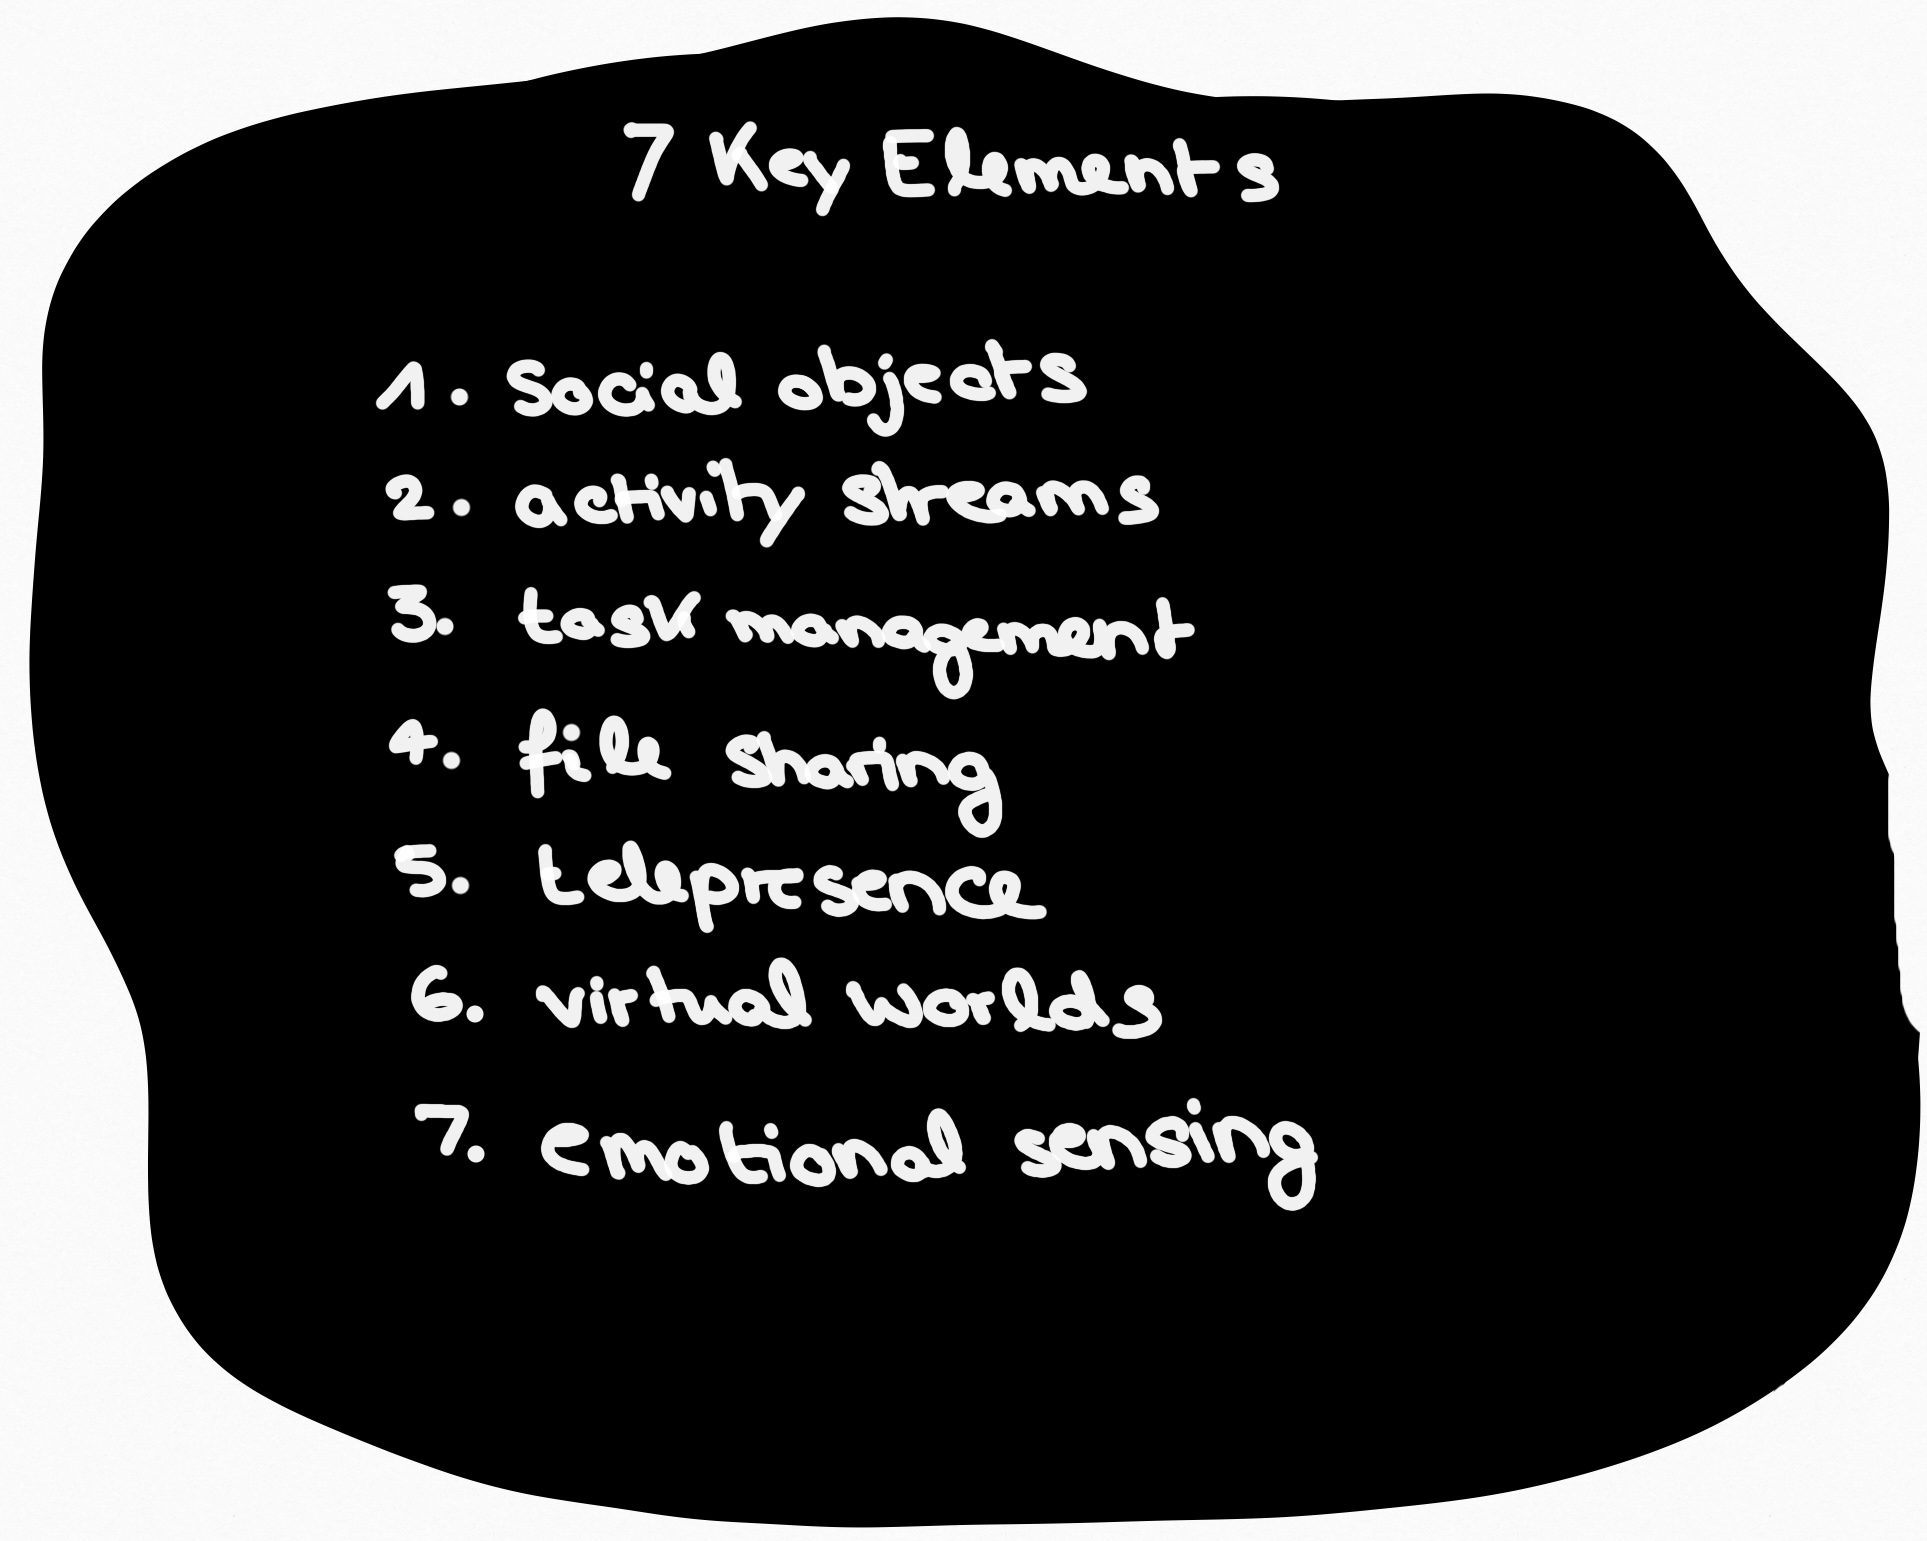 7 Key Elements
1. Social objects
2. activity streams
3. task management
4. file sharing
5. telepresence
6. virtual worlds
7. emotional sensing